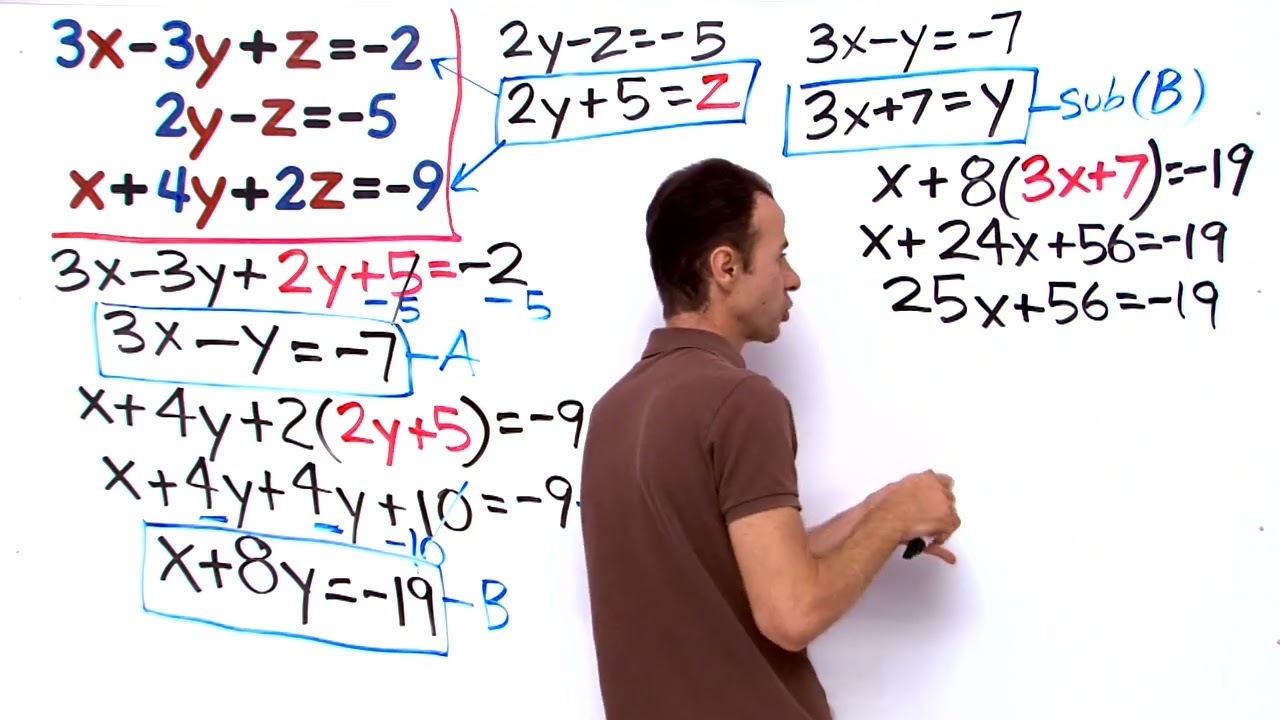 3x-3y+z=-2
2y-z=-5
x+4y+2z=-9
3x-3y+2y+5=-2
-5 -5
3x-y=-7 -A
x+4y+2(2y+5)=-9
x+4y+4y+10=-9
-10
x+8y=-19 -B
2y-z=-5
2y+5=z
3x-y=-7
3x+7=y -sub(B)
x+8(3x+7)=-19
x+24x+56=-19
25x+56=-19